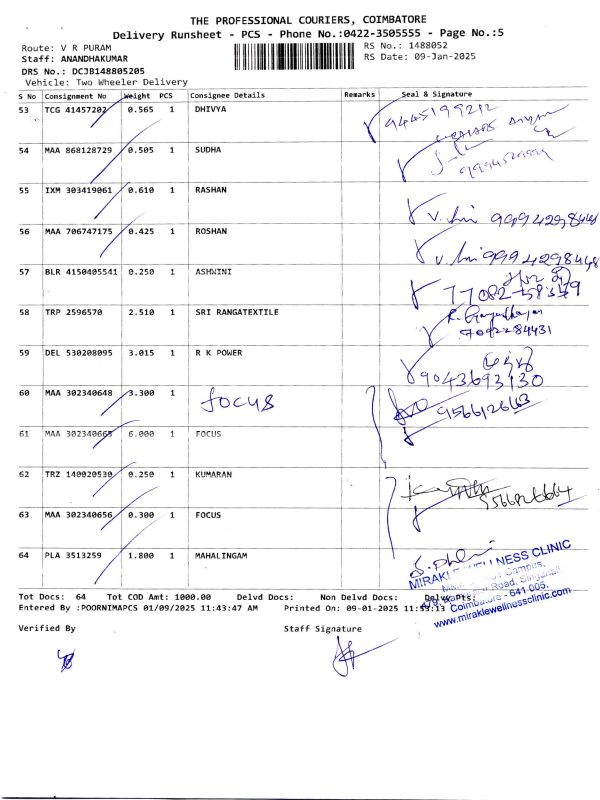 THE PROFESSIONAL COURIERS, COIMBATORE
Delivery Runsheet - PCS - Phone No.:0422-3505555 - Page No.:5
Route: V R PURAM RS No.: 1488052
Staff: ANANDHAKUMAR RS Date: 09-Jan-2025
DRS No.: DCJB148805205
Vehicle: Two Wheeler Delivery
S No Consignment No Weight PCS Consignee Details Remarks Seal & Signature
53 TCG 41457202 0.565 1 DHIVYA 9445199212
54 MAA 868128729 0.505 1 SUDHA
55 IXM 303419061 0.610 1 RASHAN
56 MAA 706747175 0.425 1 ROSHAN 9994298448
57 BLR 4150405541 0.250 1 ASHWINI 77082-58379
58 TRP 2596570 2.510 1 SRI RANGATEXTILE 7092284431
59 DEL 530208095 3.015 1 R K POWER 9043693130
60 MAA 302340648 3.300 1 FOCUS 9566126663
61 MAA 302340665 6.000 1 FOCUS
62 TRZ 140020530 0.250 1 KUMARAN
63 MAA 302340656 0.300 1 FOCUS
64 PLA 3513259 1.800 1 MAHALINGAM
MIRAKLE WELLNESS CLINIC
Campus,
Road, Singanallur
Coimbatore - 641 005.
www.miraklewellnessclinic.com
Tot Docs: 64 Tot COD Amt: 1000.00 Delvd Docs: Non Delvd Docs: Delvd Pts:
Entered By :POORNIMAPCS 01/09/2025 11:43:47 AM Printed On: 09-01-2025 11:59:13
Verified By Staff Signature